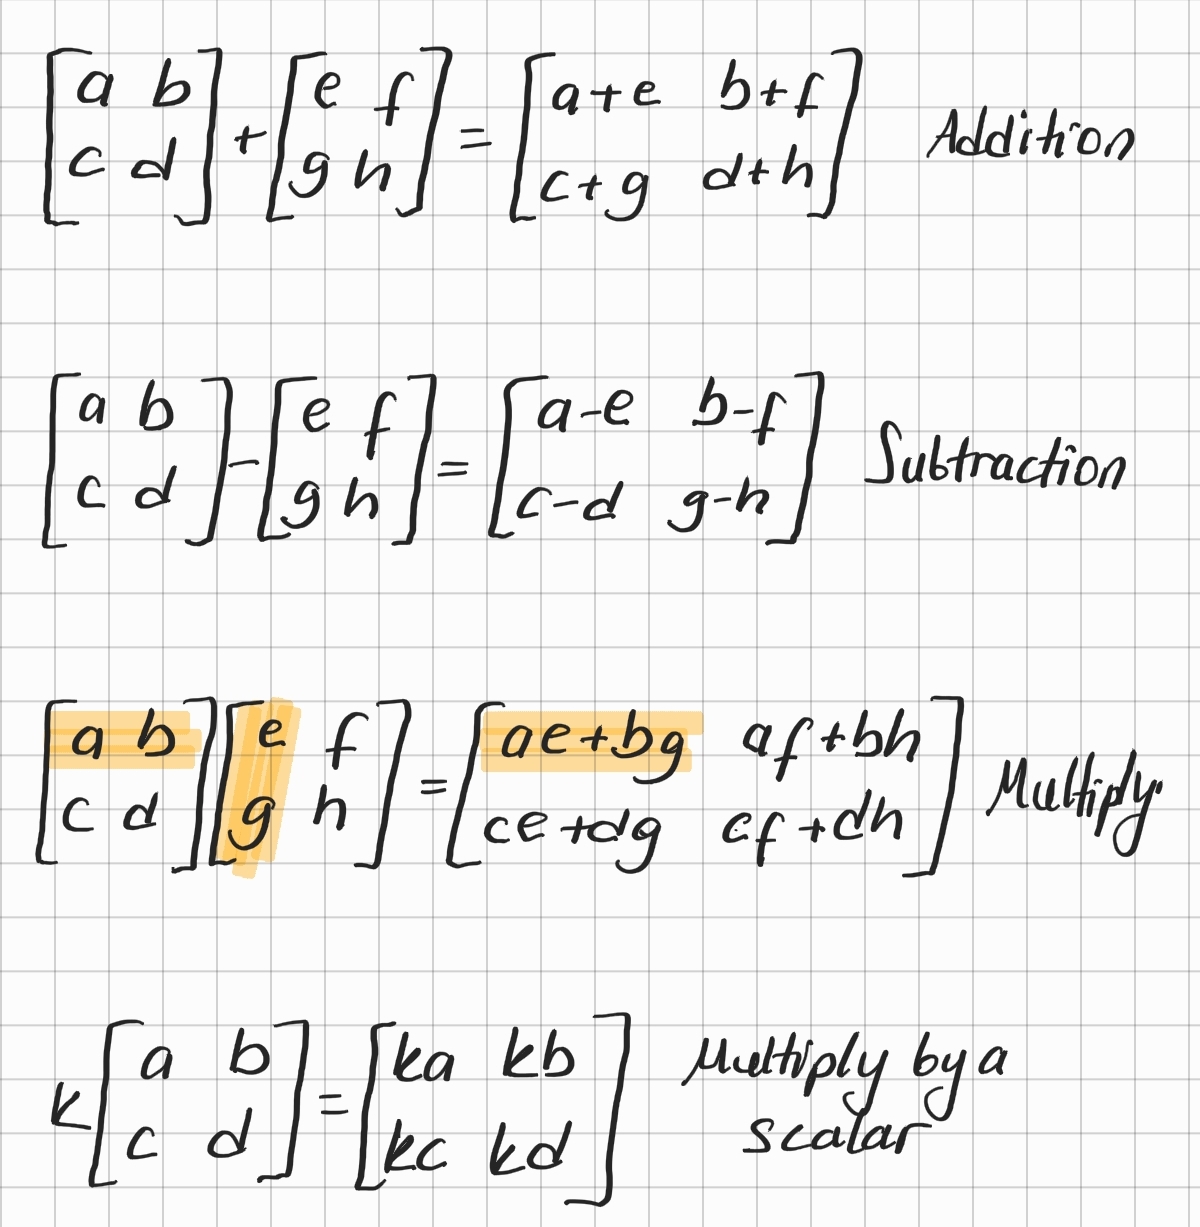 [a b; c d] + [e f; g h] = [a+e b+f; c+g d+h] Addition
[a b; c d] - [e f; g h] = [a-e b-f; c-d g-h] Subtraction
[a b; c d][e f; g h] = [ae+bg af+bh; ce+dg cf+dh] Multiply
k[a b; c d] = [ka kb; kc kd] Multiply by a
scalar